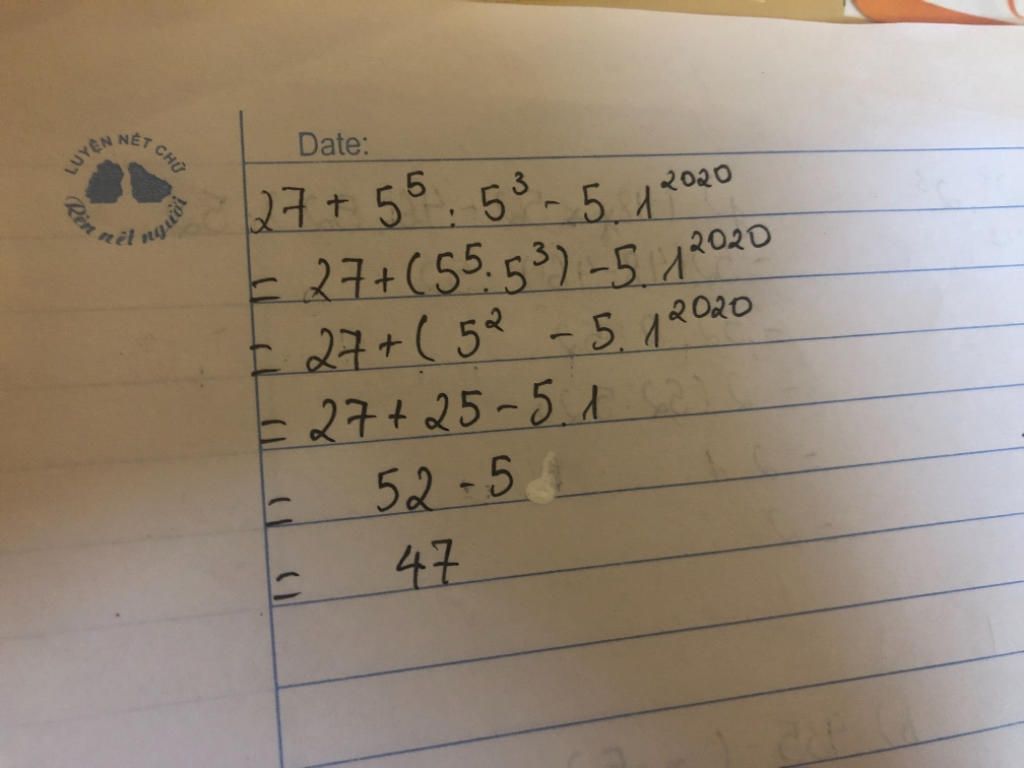 LUYỆN NÉT CHỮ
Rèn nết người
Date:
27 + 5⁵ : 5³ - 5.1²⁰²⁰
= 27 + (5⁵ : 5³) - 5.1²⁰²⁰
= 27 + ( 5² - 5.1²⁰²⁰
= 27 + 25 - 5.1
= 52 - 5
= 47